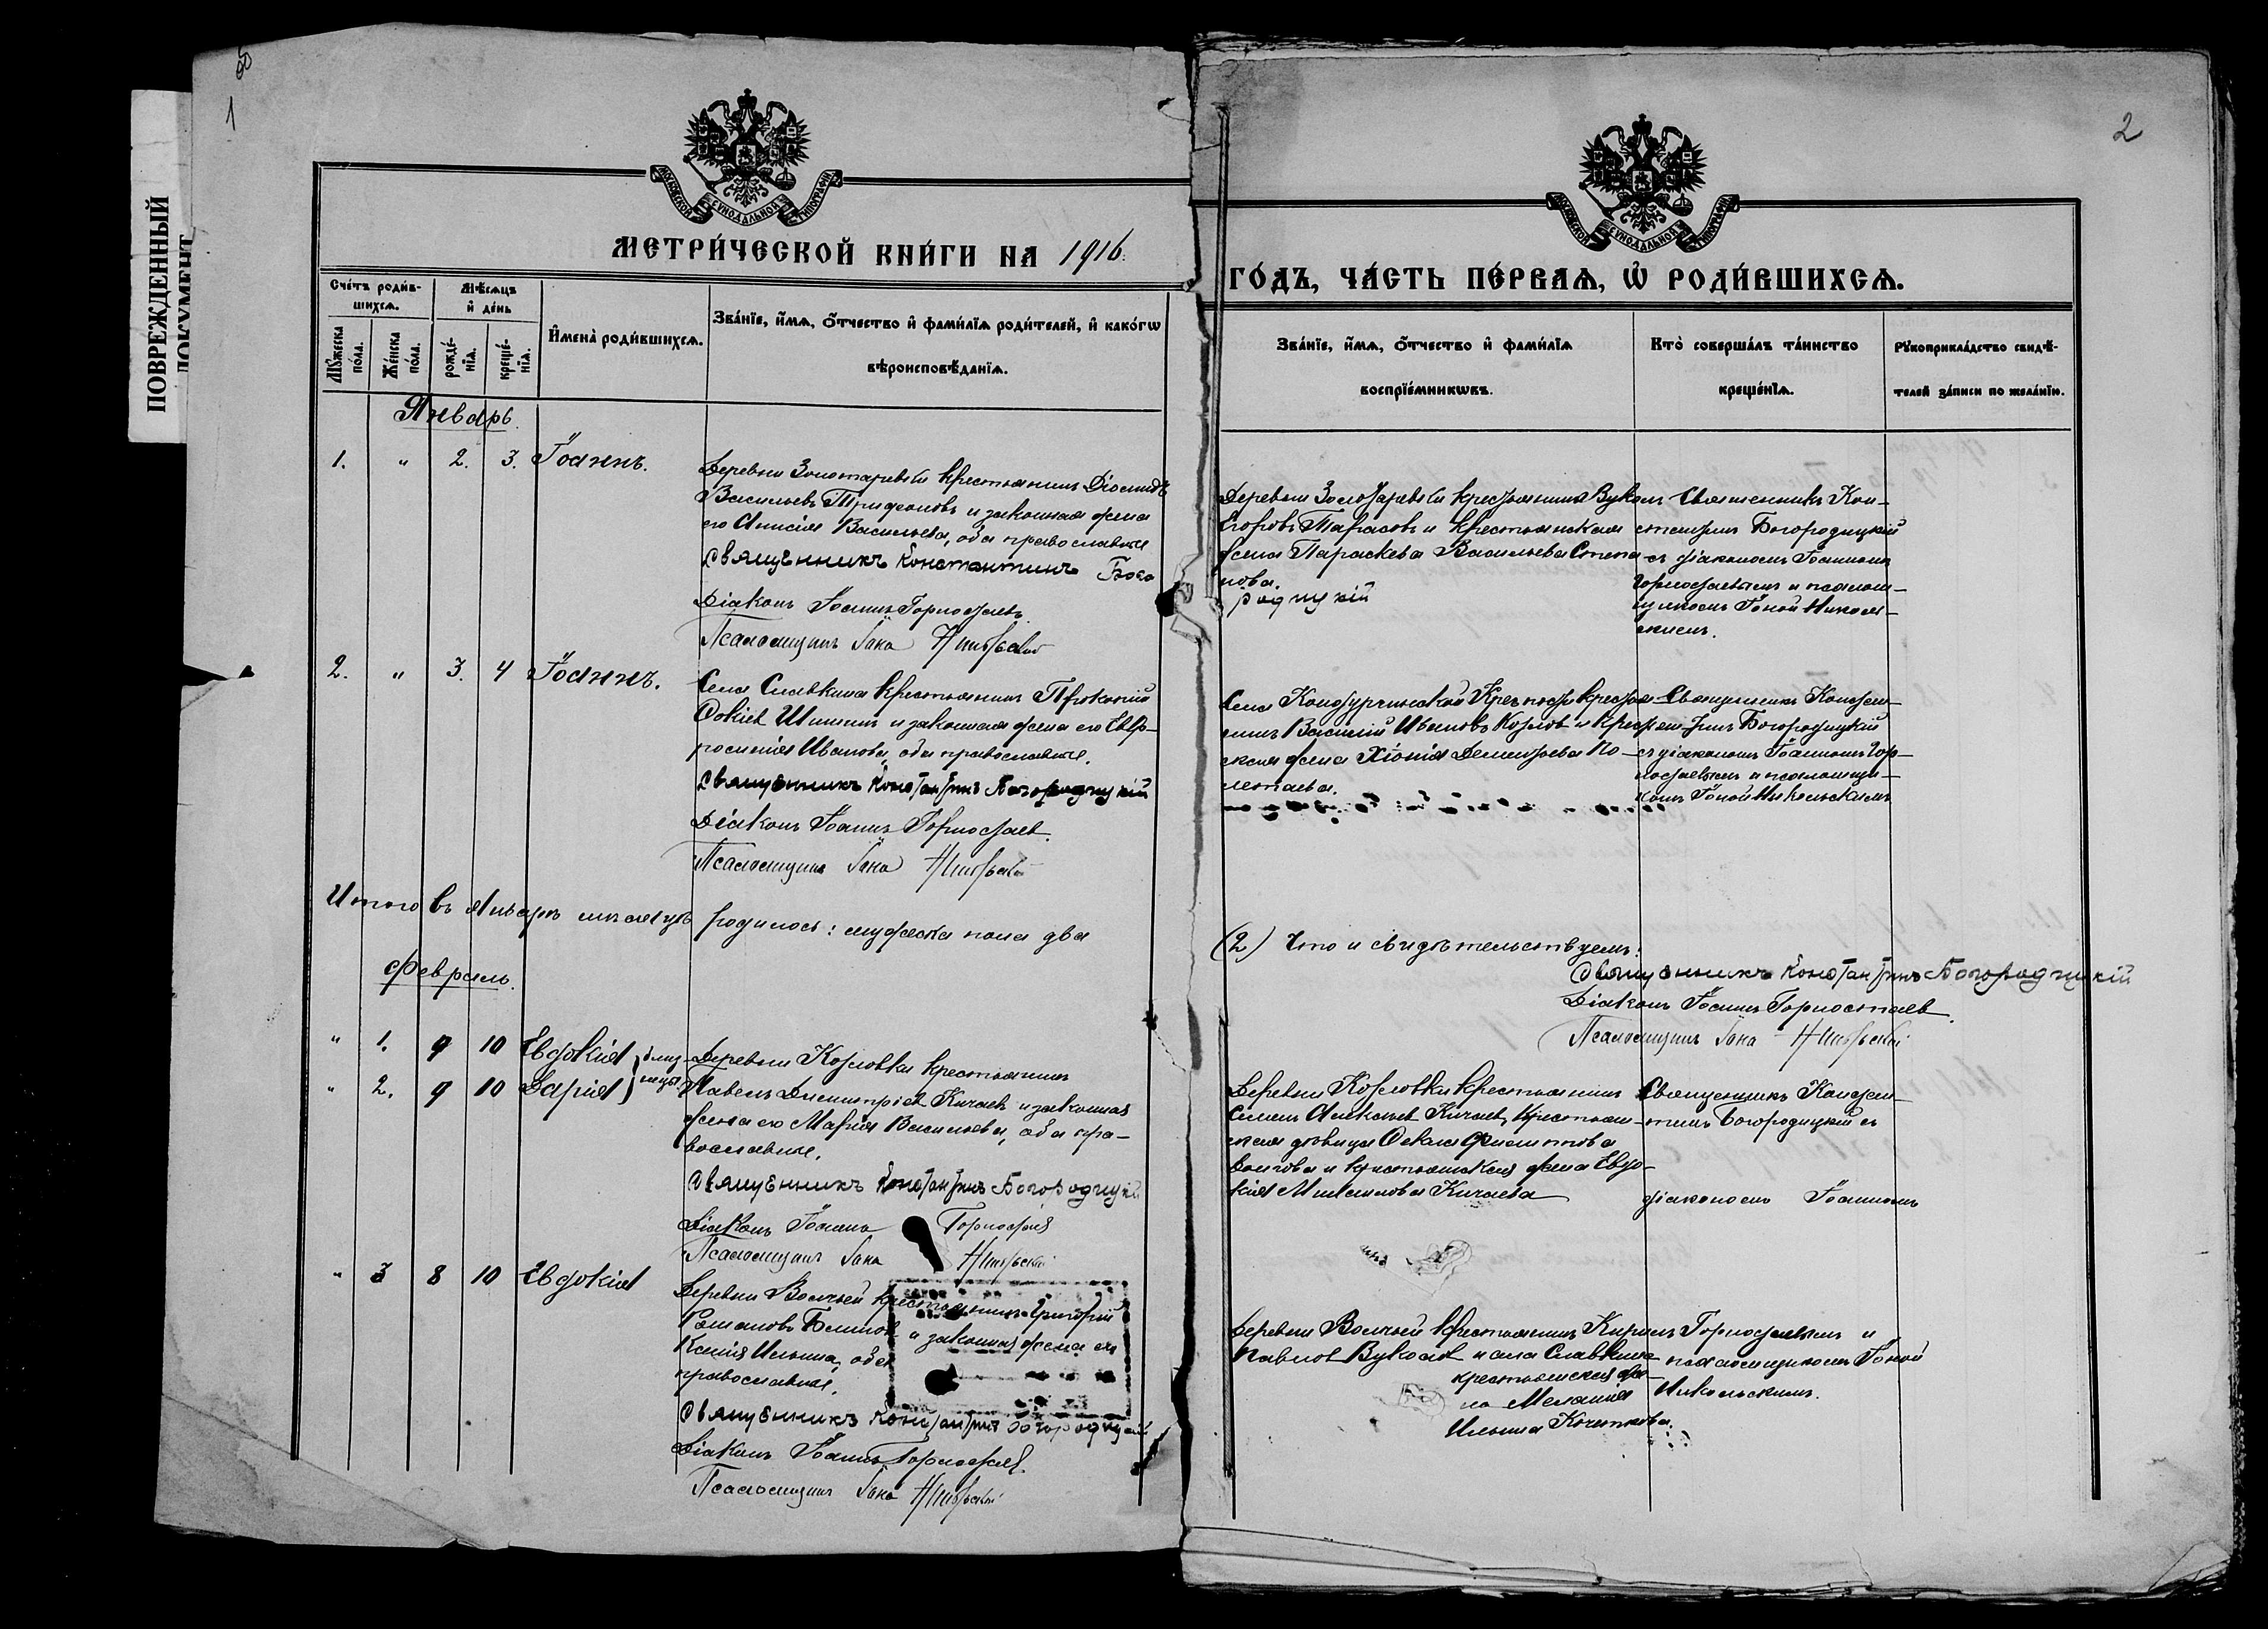 ПОВРЕЖДЕННЫЙ
ДОКУМЕНТ
1
2
МОСКОВСКОЙ СѴНОДАЛЬНОЙ ТИПОГРАФІИ
МОСКОВСКОЙ СѴНОДАЛЬНОЙ ТИПОГРАФІИ
МЕТРИ́ЧЕСКОЙ КНИ́ГИ НА 1916.
ГО́ДЪ, ЧА́СТЬ ПЕ́РВАѦ, Ѡ РОДИ́ВШИХСѦ.
Сче́тъ роди́в-
шихсѧ.
Мꙋ́жеска по́ла.
Же́нска по́ла.
Мѣ́сѧцъ
и҆ де́нь
рожде́-
нїѧ.
креще́-
нїѧ.
И҆мена̀ роди́вшихсѧ.
Зва́нїе, и҆́мѧ, ѻ҆́тчество и҆ фами́лїѧ роди́телей, и҆ како́гѡ
вѣроисповѣ́данїѧ.
Зва́нїе, и҆́мѧ, ѻ҆́тчество и҆ фами́лїѧ
воспрїе́мникѡвъ.
Кто̀ соверша́лъ та́инство
креще́нїѧ.
Рꙋкоприкла́дство свидѣ́-
телей за́писи по жела́нїю.
Январь.
1. " 2. 3. Іоаннъ.
Деревни Золотаревки крестьянинъ Діомидъ
Васильевъ Трифоновъ и законная жена
его Анисія Васильева, оба православные
Священникъ Константинъ Бого
Діаконъ Іоаннъ Горностаевъ.
Псаломщикъ Іона Никольскій
Деревни Золотаревки крестьянинъ Вукол
Егоровъ Тарасовъ и крестьянская
жена Параскева Васильева Степа
нова.
родицкій
Священникъ Кон-
стантинъ Богородицкій
съ діакономъ Іоанномъ
Горностаевымъ и псалом-
щикомъ Іоной Николь-
скимъ.
2. " 3. 4 Іоаннъ.
Села Славкина крестьянинъ Прокопій
Фокіев Шишкин и законная жена его Евф-
росинія Иванова, оба православные.
Священникъ Константинъ Богородицкій
Діаконъ Іоаннъ Горностаев.
Псаломщикъ Іона Никольскій
Села крестья-
нинъ Василій Ивановъ Козлов и крестьян-
ская жена Хіонія Дементьева По-
летаева.
Священникъ Констан-
тинъ Богородицкій
съ діакономъ Іоанномъ Гор-
ностаевымъ и псаломщи-
комъ Іоной Никольскимъ
Итого въ Январѣ мѣсяцѣ родилось: мужеска пола два
(2) Что и свидѣтельствуемъ:
Священникъ Константинъ Богородицкій
Діаконъ Іоаннъ Горностаев.
Псаломщикъ Іона Никольскій
Февраль.
" 1. 9 10 Евдокія } близ-
" 2. 9 10 Дарія } нецы.
Деревни Козловки крестьянинъ
Павелъ Димитріев Кичаев и законная
жена его Марія Васильева, оба пра-
вославные.
Священникъ Константинъ Богородицкій
Діаконъ Іоаннъ Горностаев
Псаломщикъ Іона Никольскій
Деревни Козловки крестьянинъ
Семенъ Алексѣев Кичаев, крестьян-
ская дѣвица Фекла Филиппова
и крестьянская жена Евдо-
кія Кичаева
Священникъ Констан-
тинъ Богородицкій съ
діакономъ Іоанномъ
" 3 8 10 Евдокія
Деревни Волчьей крестьянинъ Григорій
Романовъ Блинов и законная жена его
Ксенія Ильина, оба
православные.
Священникъ Константинъ Богородицкій
Діаконъ Іоаннъ Горностаев.
Псаломщикъ Іона Никольскій
Деревни Волчьей крестьянинъ Кирилъ
Павлов Вуколов и села Славкина
крестьянская же-
на Меланія
Ильина
Горностаевымъ и
псаломщикомъ Іоной
Никольскимъ.